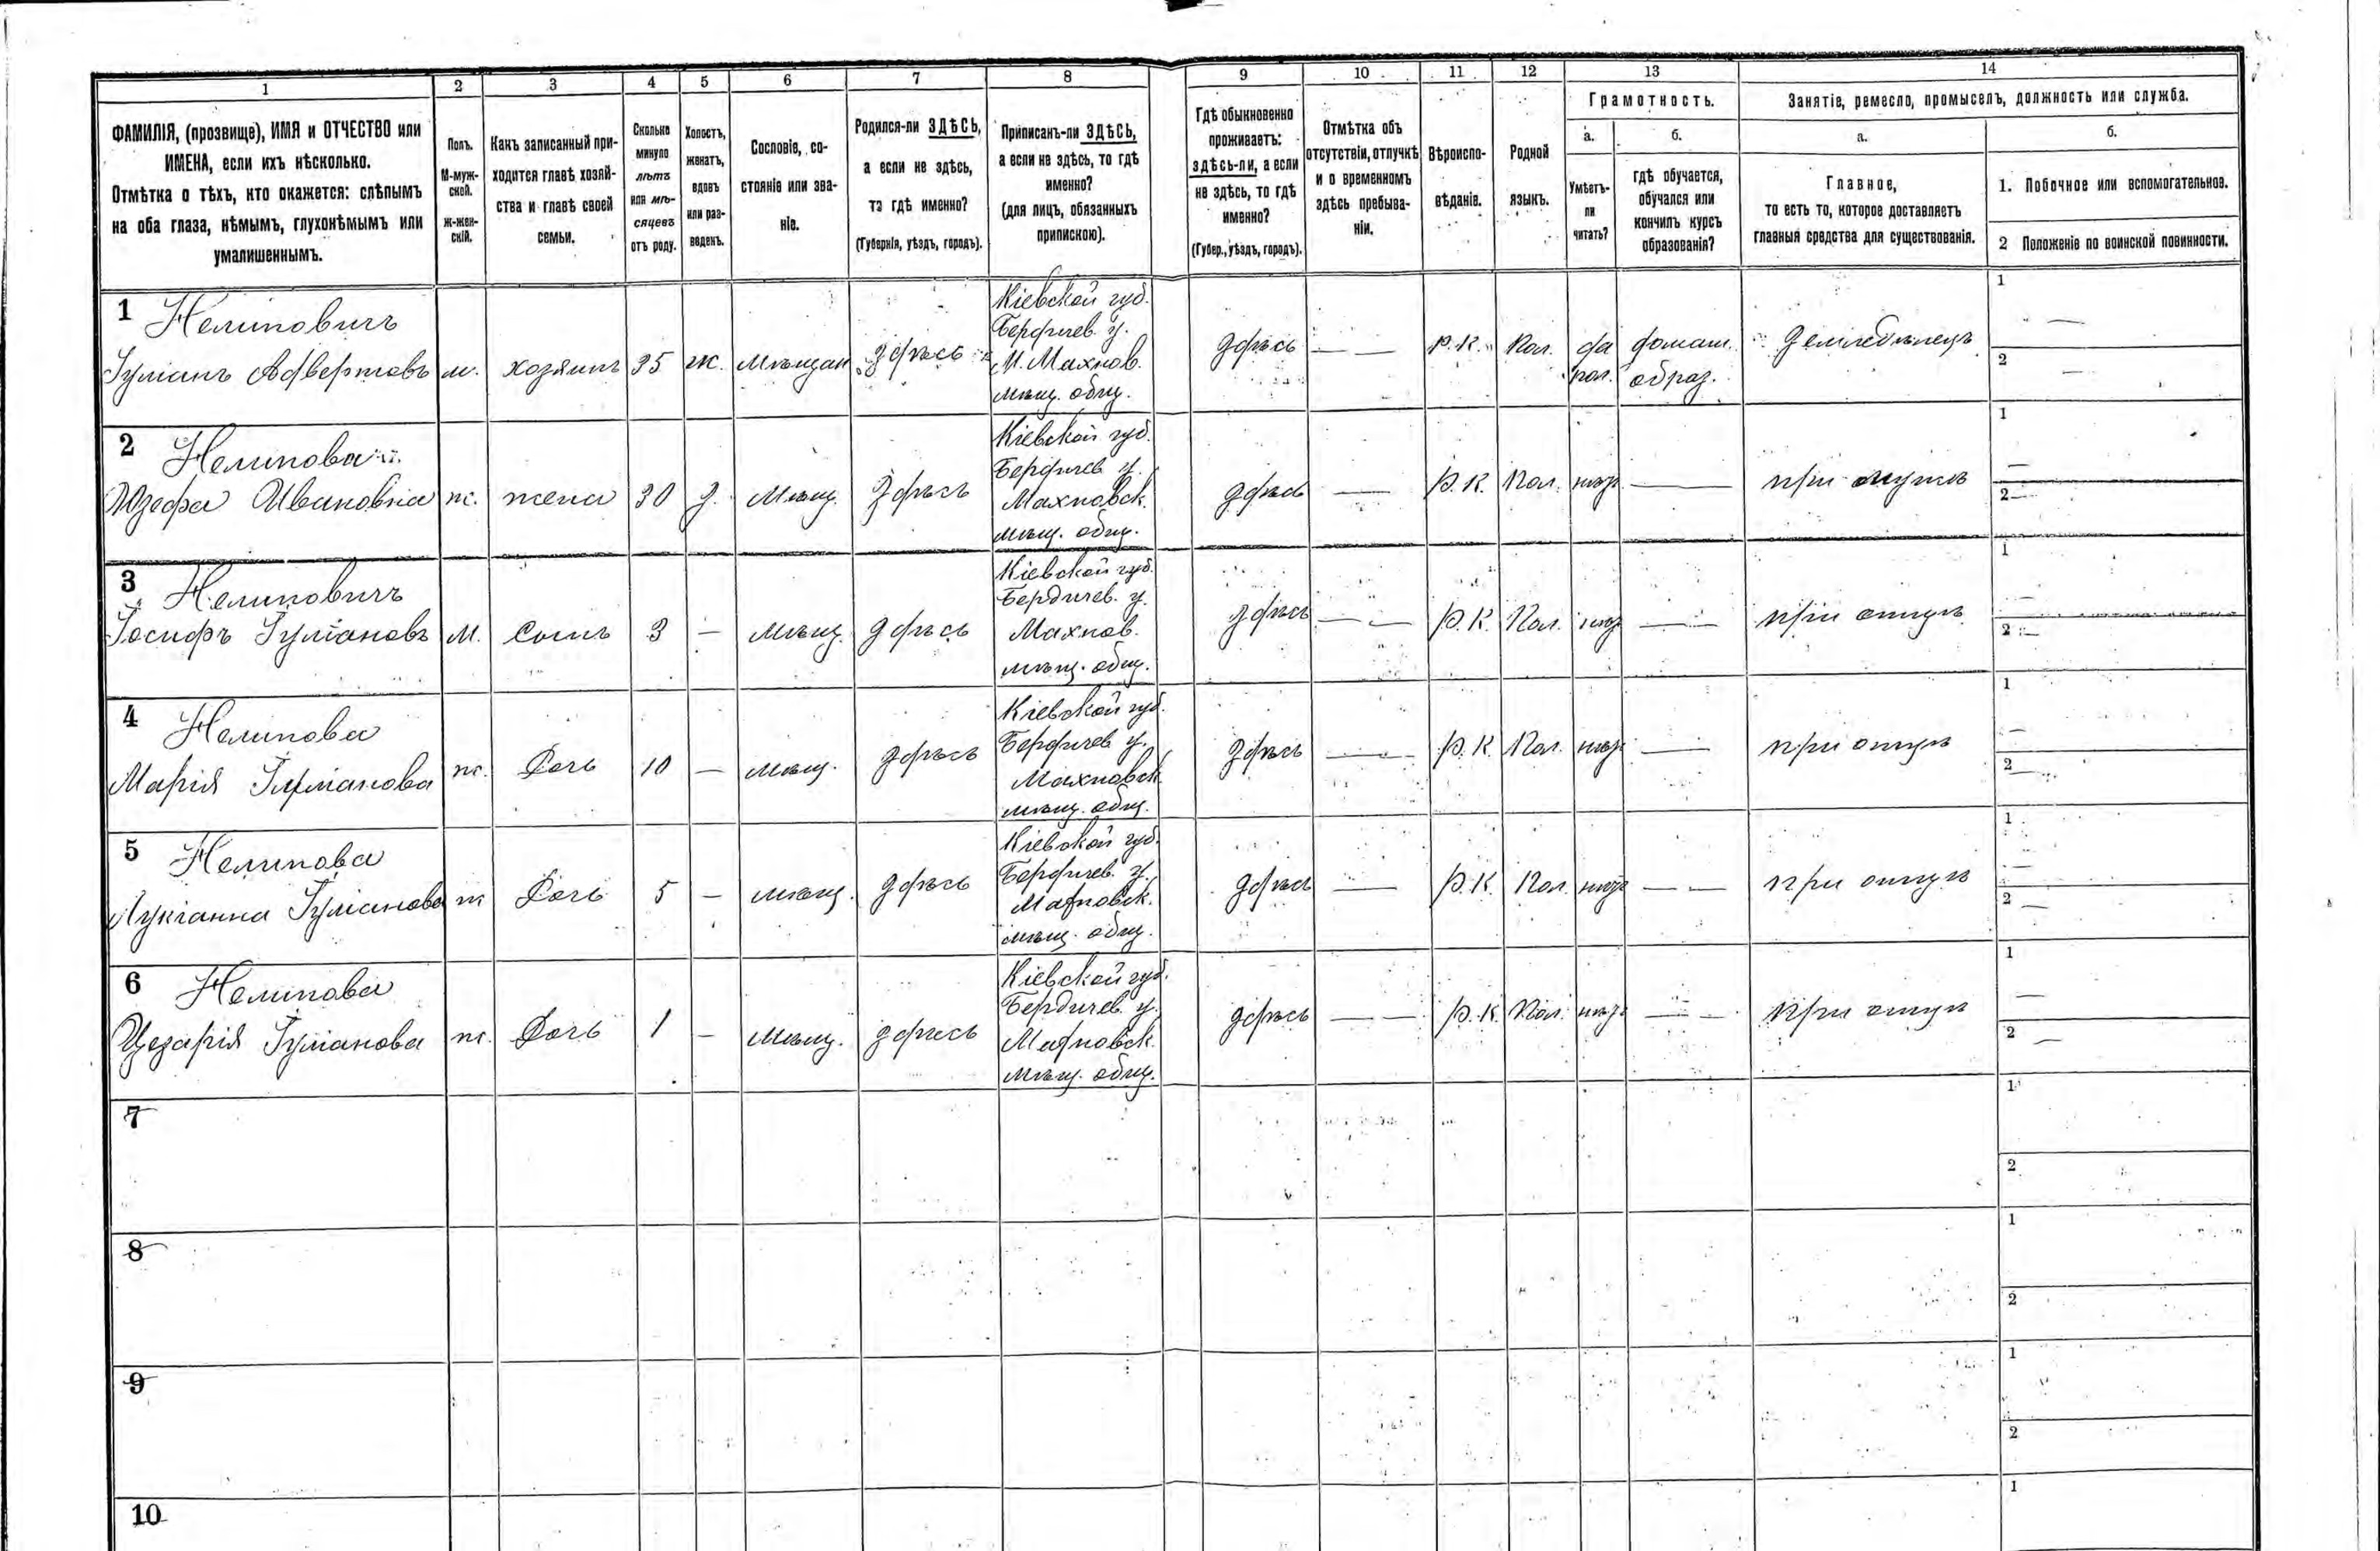 1 2 3 4 5 6 7 8 9 10 11 12 13 14
ФАМИЛІЯ, (прозвище), ИМЯ и ОТЧЕСТВО или
ИМЕНА, если ихъ нѣсколько.
Отмѣтка о тѣхъ, кто окажется: слѣпымъ
на оба глаза, нѣмымъ, глухонѣмымъ или
умалишеннымъ.
Полъ.
М-муж-
ской.
ж-жен-
скій.
Какъ записанный при-
ходится главѣ хозяй-
ства и главѣ своей
семьи.
Сколько
минуло
лѣтъ
или мѣ-
сяцевъ
отъ роду.
Холостъ,
женатъ,
вдовъ
или раз-
веденъ.
Сословіе, со-
стояніе или зва-
ніе.
Родился-ли ЗДѢСЬ,
а если не здѣсь,
то гдѣ именно?
(Губернія, уѣздъ, городъ).
Приписанъ-ли ЗДѢСЬ,
а если не здѣсь, то гдѣ
именно?
(для лицъ, обязанныхъ
припискою).
Гдѣ обыкновенно
проживаетъ:
здѣсь-ли, а если
не здѣсь, то гдѣ
именно?
(Губер., уѣздъ, городъ).
Отмѣтка объ
отсутствіи, отлучкѣ
и о временномъ
здѣсь пребыва-
ніи.
Вѣроиспо-
вѣданіе.
Родной
языкъ.
Грамотность.
а.
Умѣетъ-
ли
читать?
б.
гдѣ обучается,
обучался или
кончилъ курсъ
образованія?
Занятіе, ремесло, промыселъ, должность или служба.
а.
Главное,
то есть то, которое доставляетъ
главныя средства для существованія.
б.
1. Побочное или вспомогательное.
2 Положеніе по воинской повинности.
1 Нелиповичъ
Іуліанъ Адвертовъ м. хозяинъ 35 ж. Мѣщан здѣсь
Кіевской губ.
Бердичев. у.
М. Махнов.
мѣщ. общ.
здѣсь — — Р. К. Пол. да
пол.
домаш.
образ.
Земледѣлецъ
1 —
2 —
2 Нелипова
Юзефа Ивановна ж. жена 30 з. Мѣщ. Здѣсь
Кіевской губ.
Бердичев у.
Махновск.
мѣщ. общ.
здѣсь — Р. К. Пол. нѣт — при мужѣ
1 —
2 —
3 Нелиповичъ
Іосифъ Іуліановъ М. Сынъ 3 — Мѣщ. здѣсь
Кіевской губ.
Бердичев. у.
Махнов.
мѣщ. общ.
здѣсь — — Р. К. Пол. нѣт — при отцѣ
1 —
2 —
4 Нелипова
Марія Іуліанова ж. Дочь 10 — мѣщ. здѣсь
Кіевской губ.
Бердичев у.
Махновск
мѣщ. общ.
здѣсь — Р. К Пол. нѣт — при отцѣ
1 —
2 —
5 Нелипова
Луціанна Іуліанова ж Дочь 5 — мѣщ. здѣсь
Кіевской губ.
Бердичев. у.
Махновск.
мѣщ. общ.
здѣсь — Р. К. Пол нѣт — — при отцѣ
1 —
2 —
6 Нелипова
Цезарія Іуліанова ж. Дочь 1 — мѣщ. здѣсь
Кіевской губ.
Бердичев. у.
Махновск.
мѣщ. общ.
здѣсь — — Р. К. Пол. нѣт — — при отцѣ
1 —
2 —
7
1
2
8
1
2
9
1
2
10
1